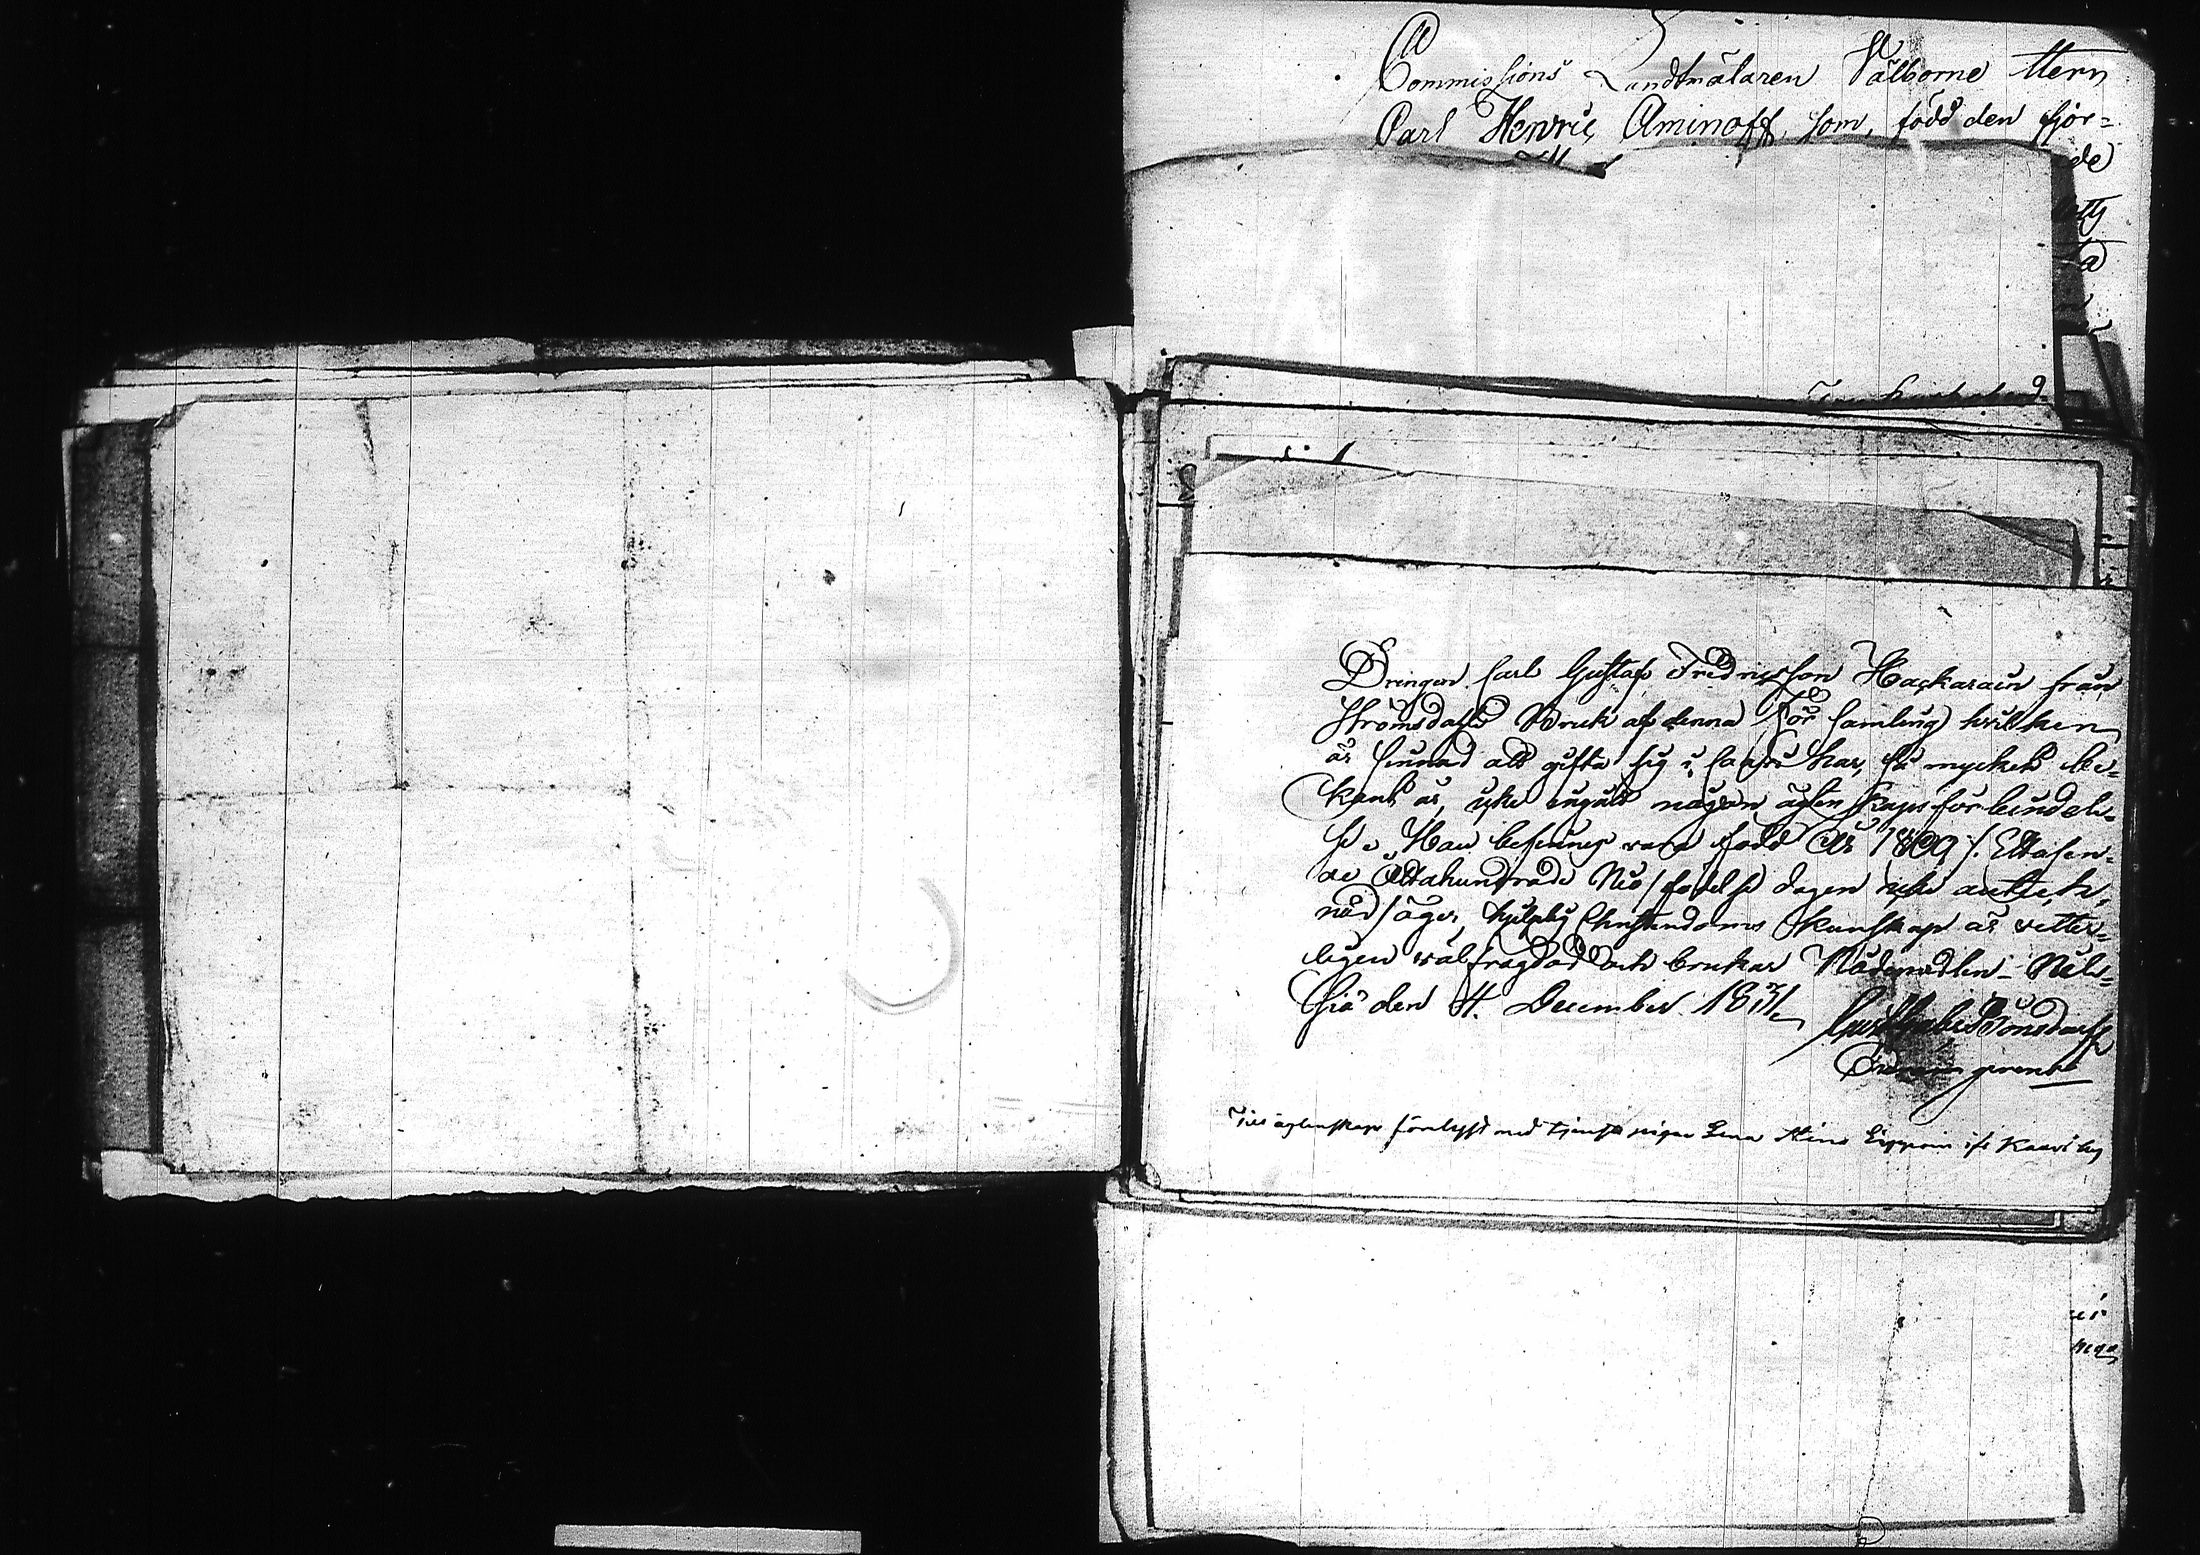 Commissions Landtmätaren Välborne Herr
Carl Henric Aminoff, som, född den fjor=
de
Drengen Carl Gustaf Fredricsson Hackarain från
Strömsdahls Bruk af denna För samling) hvilken
är sinnad att gifta sig i Kaavi har, så mycket be=
kant är, icke ingått någon ägtenskaps förbindel=
se. Han befinnes vara född År 1809 /: Ettusen=
de Åttahundrade Nio / födelse dagen icke anteck=
nad / äger hjelplig Christendoms kunskap är vitter=
ligen välfrägdad och brukar Nådemedlen – Nils=
siä den 4. December 1831.
Till ägtenskap förelyst med tjenste pigan Lena Stina ifr Kaavi by